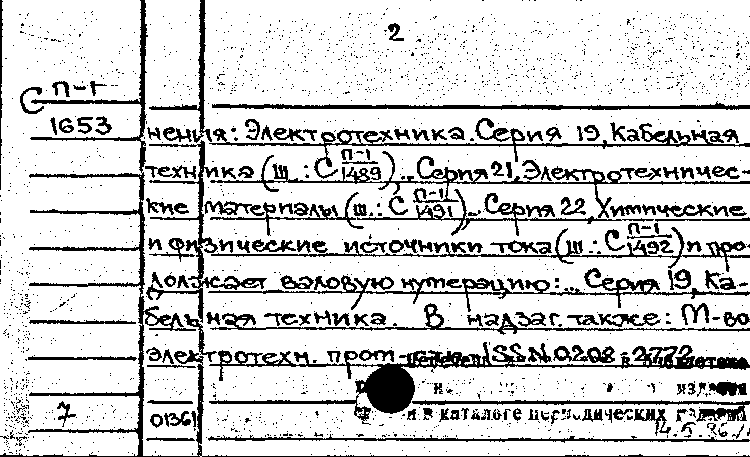 2
С П-1
1653
нения: Электротехника. Серия 19, Кабельная
техника (ш.: С П-1 1489)., Серия 21, Электротехничес-
кие материалы (ш.: С П-1 1491)., Серия 22, Химические
и физические источники тока (ш.: С П-1 1492) и про-
должает валовую нумерацию: .. Серия 19, Ка-
бельная техника. В надзаг. также: М-во
электротехн. пром-сти. ISSN 0208-2772
7
01361
и в каталоге периодических
14.5.86